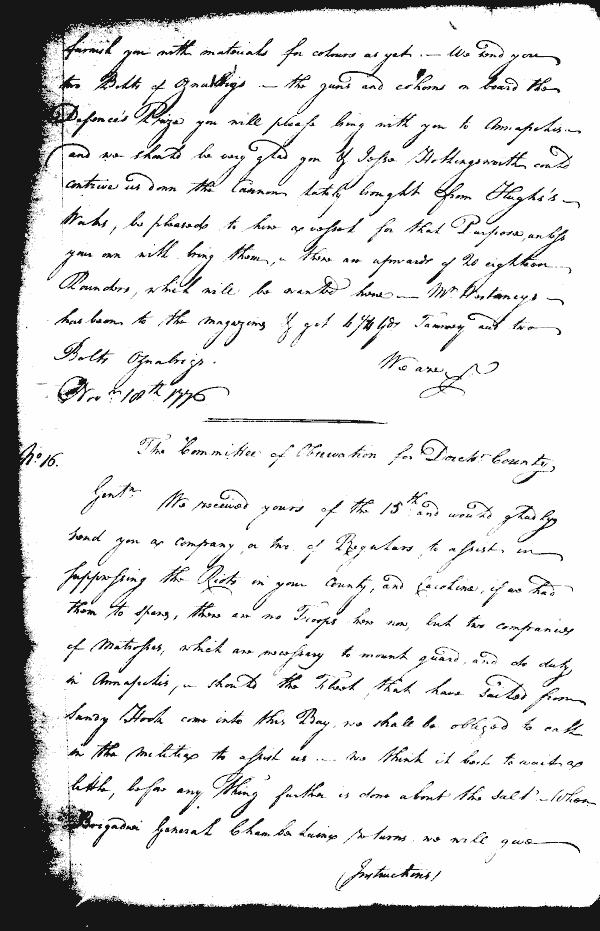 furnish you with materials for colours as yet. — We send you
two Bolts of Oznabrigs — the guns and cohorns on board the
Defence's Prize you will please bring with you to Annapolis. —
and we should be very glad you & Jesse Hollingsworth could
contrive us down the Cannon lately brought from Hughs's —
Works, be pleased to hire a vessel for that Purpose, unless
your own will bring them, there are upwards of 20 eighteen
Pounders, which will be wanted here — Mr
has been to the magazine & got Tammy and two
Bolts Oznabrigs. We are &
Novr. 18th 1776
No. 16. The Committee of Observation for Dorchr. County
Gentn. We received yours of the 15th and would gladly
send you a company or two of Regulars, to assist in
suppressing the Riots in your County, and Caroline, if we had
them to spare, there are no Troops here now, but two companies
of Matrosses, which are necessary to mount guard and do duty
in Annapolis, should the Fleet that have sailed from
Sandy Hook come into this Bay, we shall be obliged to call
in the militia to assist us. — We think it best to wait a
little, before any thing further is done about the Salt — When
Brigadier General Chamberlaine returns we will give
Instructions